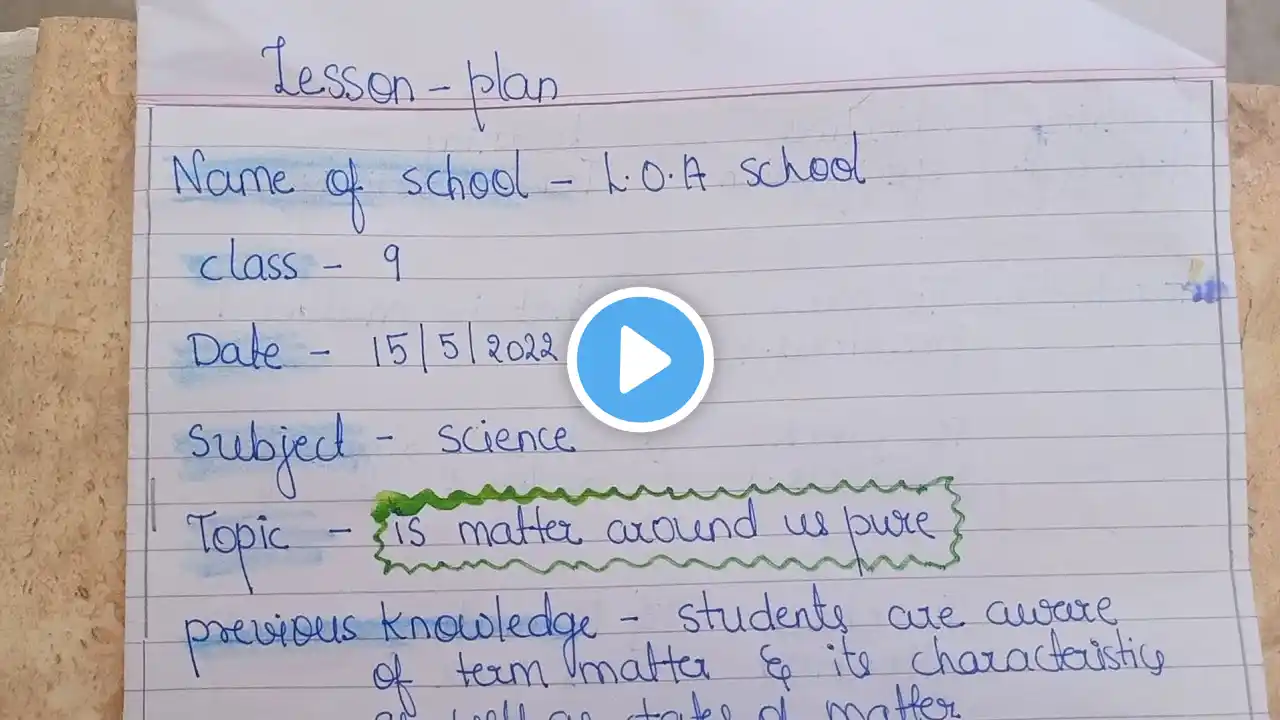 Lesson - plan
Name of school - L.O.A school
class - 9
Date - 15/5/2022
Subject - science
Topic - is matter around us pure
previous knowledge - students are aware
of term matter & its characteristics
as well as state of matter